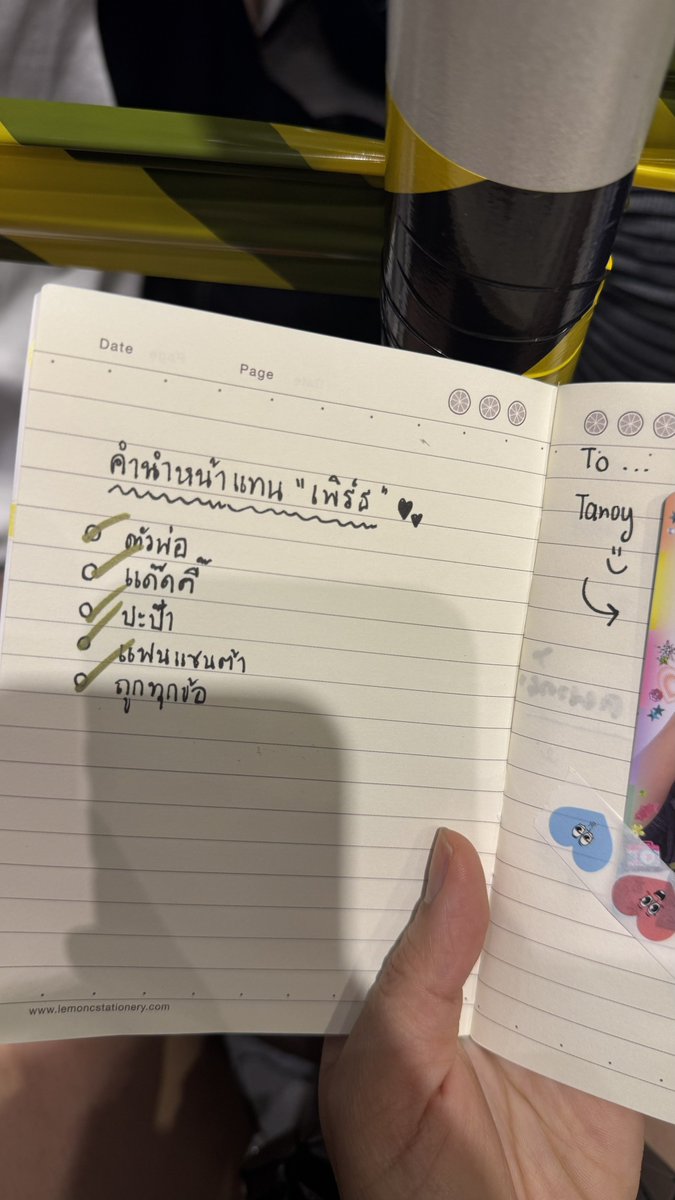 Date Page
คำนำหน้าแทน "เพิร์ธ"
ตัวพ่อ
แด๊ดดี๊
ปะป๊า
แฟนแซนต้า
ถูกทุกข้อ
www.lemoncstationery.com
To ...
Tanoy